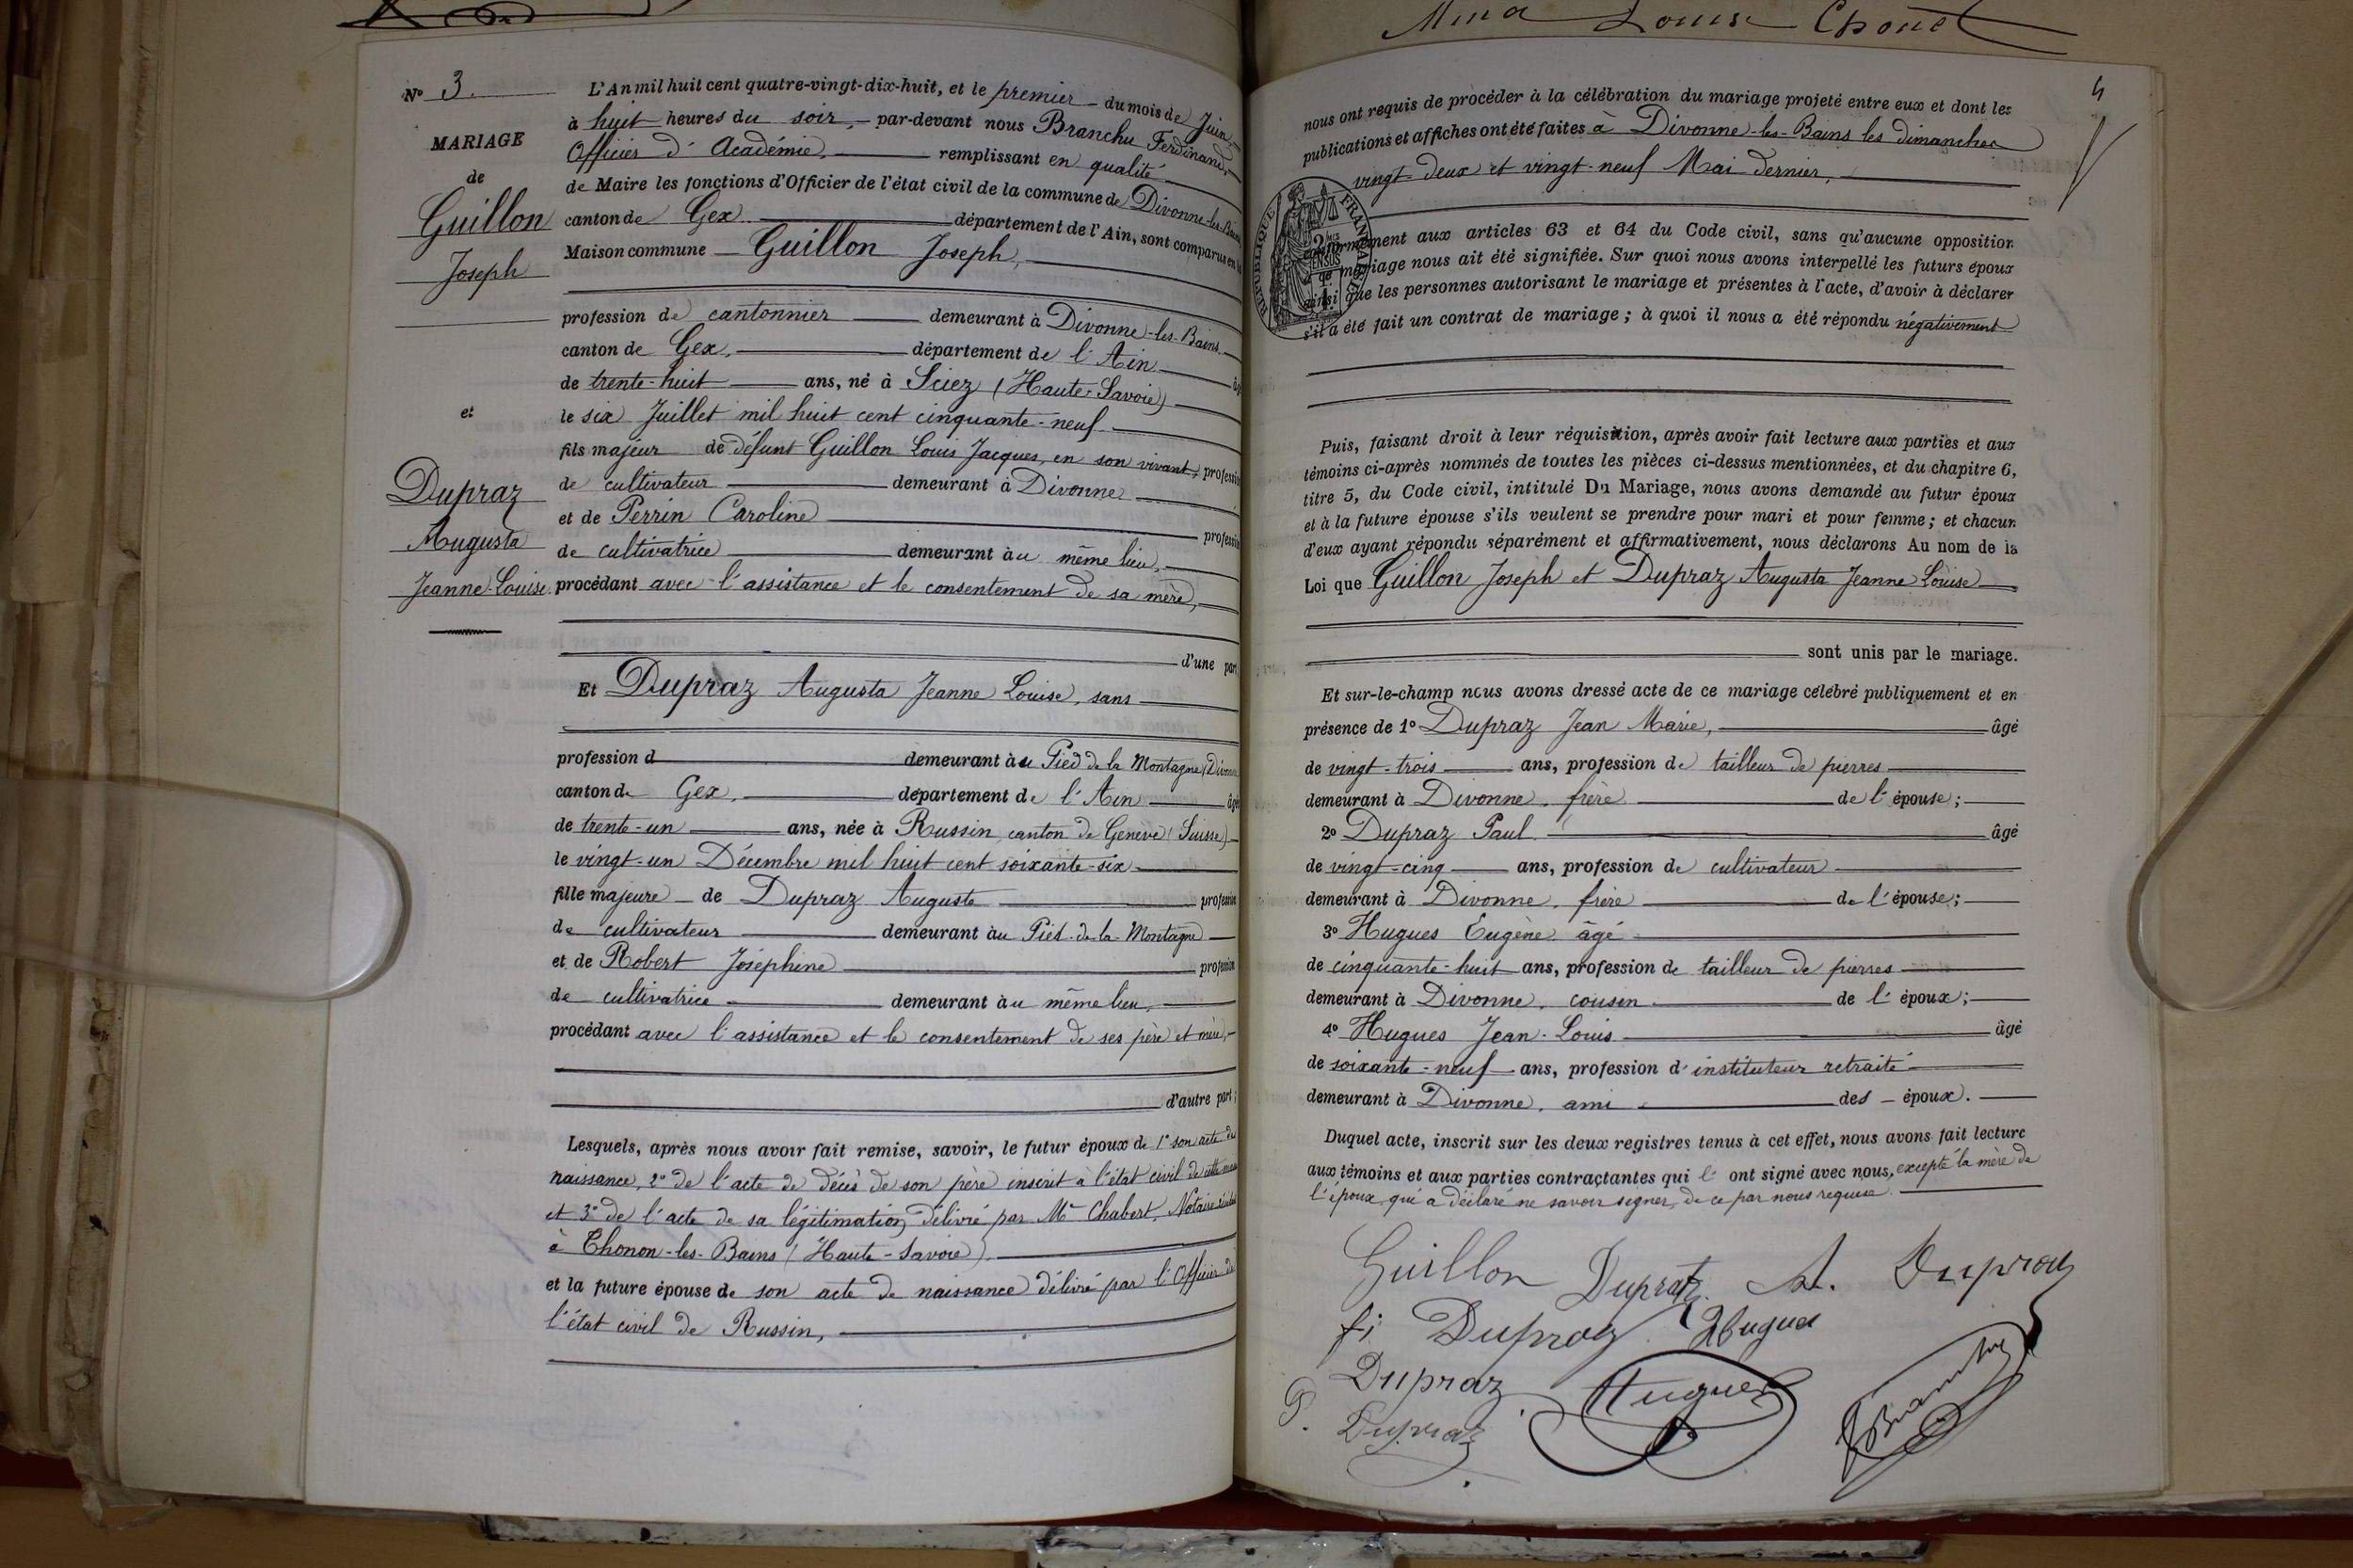 Louise Choüet
N° 3.
MARIAGE
de
Guillon
Joseph
et
Dupraz
Augusta
Jeanne-Louise.
L'An mil huit cent quatre-vingt-dix-huit, et le premier du mois de Juin,
à huit heures du soir, par-devant nous Branchu Ferdinand,
Officier d'Académie, remplissant en qualité
de Maire les fonctions d'Officier de l'état civil de la commune de Divonne-les-Bains
canton de Gex département de l'Ain, sont comparus en la
Maison commune Guillon Joseph,
profession de cantonnier demeurant à Divonne-les-Bains
canton de Gex, département de l'Ain âgé
de trente-huit ans, né à Sciez (Haute-Savoie)
le six Juillet mil huit cent cinquante-neuf
fils majeur de défunt Guillon Louis Jacques, en son vivant, profession
de cultivateur demeurant à Divonne
et de Perrin Caroline profession
de cultivatrice demeurant au même lieu,
procédant avec l'assistance et le consentement de sa mère,
d'une part
Et Dupraz Augusta Jeanne Louise, sans
profession d demeurant au Pied de la Montagne (Divonne
canton de Gex, département de l'Ain âgé
de trente-un ans, née à Russin, canton de Genève (Suisse)
le vingt-un Décembre mil huit cent soixante-six
fille majeure de Dupraz Auguste profession
de cultivateur demeurant au Pied-de-la-Montagne
et de Robert Joséphine profession
de cultivatrice demeurant au même lieu,
procédant avec l'assistance et le consentement de ses père et mère,
d'autre part;
Lesquels, après nous avoir fait remise, savoir, le futur époux de 1° son acte de
naissance, 2° de l'acte de décès de son père inscrit à l'état civil de cette
et 3° de l'acte de sa légitimation délivré par Me Chabert, Notaire
à Thonon-les-Bains (Haute-Savoie)
et la future épouse de son acte de naissance délivré par l'Officier de
l'état civil de Russin,
4
nous ont requis de procéder à la célébration du mariage projeté entre eux et dont les
publications et affiches ont été faites à Divonne-les-Bains les dimanches
vingt-deux et vingt-neuf Mai dernier,
RÉPUBLIQUE FRANÇAISE
conformément aux articles 63 et 64 du Code civil, sans qu'aucune opposition
de mariage nous ait été signifiée. Sur quoi nous avons interpellé les futurs époux
ainsi que les personnes autorisant le mariage et présentes à l'acte, d'avoir à déclarer
s'il a été fait un contrat de mariage; à quoi il nous a été répondu négativement
Puis, faisant droit à leur réquisition, après avoir fait lecture aux parties et aux
témoins ci-après nommés de toutes les pièces ci-dessus mentionnées, et du chapitre 6,
titre 5, du Code civil, intitulé Du Mariage, nous avons demandé au futur époux
et à la future épouse s'ils veulent se prendre pour mari et pour femme; et chacun
d'eux ayant répondu séparément et affirmativement, nous déclarons Au nom de la
Loi que Guillon Joseph et Dupraz Augusta Jeanne Louise
sont unis par le mariage.
Et sur-le-champ nous avons dressé acte de ce mariage célébré publiquement et en
présence de 1° Dupraz Jean Marie, âgé
de vingt-trois ans, profession de tailleur de pierres
demeurant à Divonne, frère de l'épouse;
2° Dupraz Paul âgé
de vingt-cinq ans, profession de cultivateur
demeurant à Divonne, frère de l'épouse;
3° Hugues Eugène âgé
de cinquante-huit ans, profession de tailleur de pierres
demeurant à Divonne, cousin de l'époux;
4° Hugues Jean-Louis âgé
de soixante-neuf ans, profession d'instituteur retraité
demeurant à Divonne, ami des époux.
Duquel acte, inscrit sur les deux registres tenus à cet effet, nous avons fait lecture
aux témoins et aux parties contractantes qui l'ont signé avec nous, excepté la mère de
l'époux qui a déclaré ne savoir signer, de ce par nous requise.
Guillon Dupratz A. Dupraz
fi Dupraz Hugues
Dupraz Hugues
P. Dupraz
Branchu